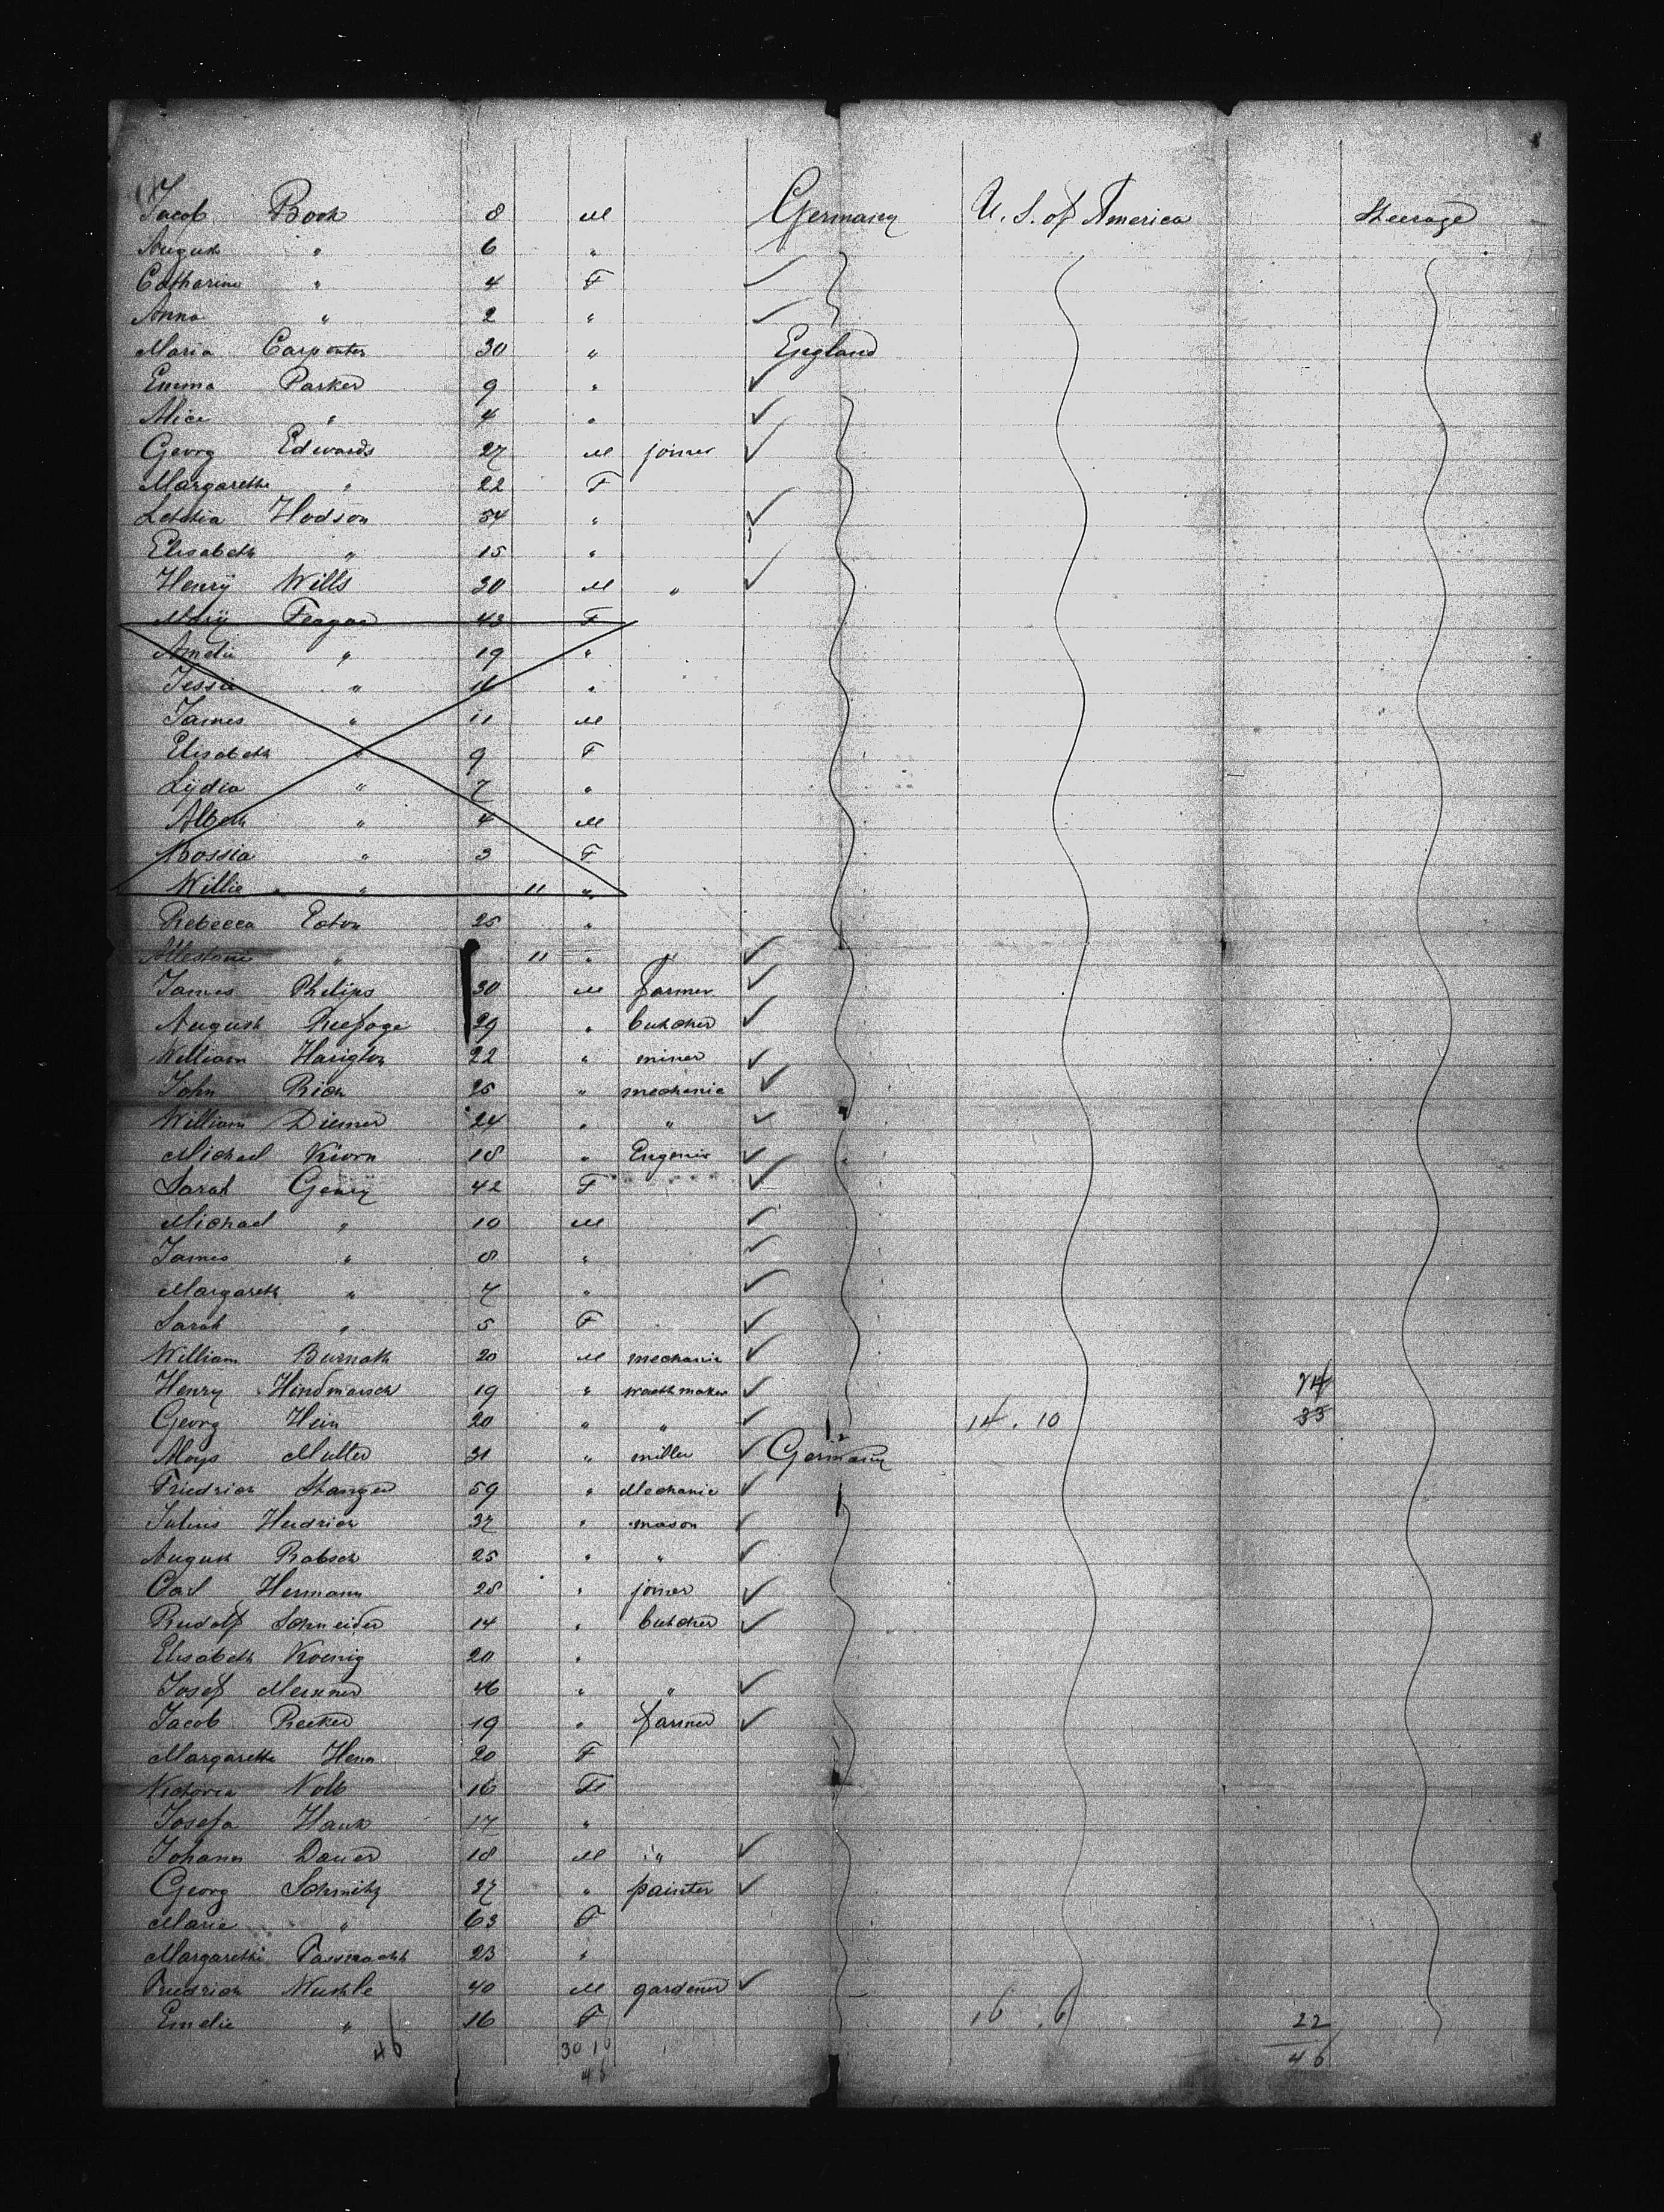 Jacob Book 8 M Germany U. S. of America Steerage
August " 6 "
Catharine " 4 F
Anna " 2 "
Maria Carpenter 30 " England
Emma Parker 9 "
Alice " 4 "
Georg Edwards 27 M joiner
Margarethe " 22 F
Letitia Hodson 54 "
Elisabeth " 15 "
Henry Wills 30 M "
Mary 43 F
Amelia " 19 "
Jessie " 16 "
James " 11 M
Elisabeth " 9 F
Lydia " 7 "
Alberth " 4 M
Rossia " 3 F
Willie " 11 "
Rebecca Eaton 25 "
" 11 " "
James Phelips 30 M farmer
August 29 " butcher
William Harigton 22 " miner
John Rich 25 " mechanic
William Diemer 24 " "
Michael Kiorn 18 "
Sarah Geniy 42 F
Michael " 10 M
James " 8 "
Margareth " 7 "
Sarah " 5 F
William Burnath 20 M mechanic
Henry Hindmarsch 19 " wacthmaker 74
Georg Hein 20 " " 14 . 10 33
Aloys Muller 31 " miller Germany
Friedrich Stanger 59 " Mechanic
Julius Heidrich 37 " mason
August Rabsch 25 " "
Carl Hermann 28 " joiner
Rudolf Schneider 14 " butcher
Elisabeth Koenig 20 "
Josef Meixner 46 " "
Jacob Recker 19 " farmer
Margarethe Henn 20 F
Victoria Nolb 16 F
Josefa Hauk 17 "
Johann Dauer 18 M "
Georg Schmitz 27 " painter
Marie " 63 F
Margarethe 23 "
Friedrich Wushle 40 M gardener
Emelie " 16 F 16 . 6 22
46 30 16 46
46